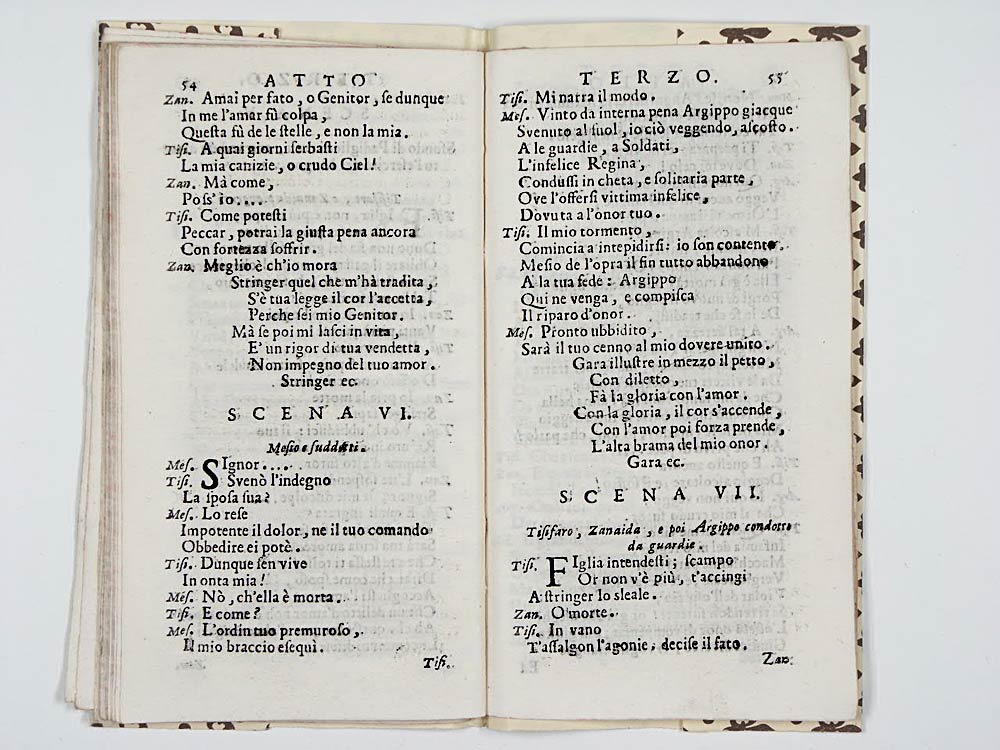 54 ATTO
Zan. Amai per fato, o Genitor, se dunque
In me l'amar fù colpa,
Questa fù de le stelle, e non la mia.
Tisi. A quai giorni serbasti
La mia canizie, o crudo Ciel!
Zan. Mà come,
Poss' io....
Tisi. Come potesti
Peccar, potrai la giusta pena ancora
Con fortezza soffrir.
Zan. Meglio è ch'io mora
Stringer quel che m'hà tradita,
S'è tua legge il cor l'accetta,
Perche sei mio Genitor.
Mà se poi mi lasci in vita,
E' un rigor di tua vendetta,
Non impegno del tuo amor.
Stringer ec.
SCENA VI.
Mesio e sudditi.
Mes. SIgnor.....
Tisi. Svenò l'indegno
La sposa sua?
Mes. Lo rese
Impotente il dolor, ne il tuo comando
Obbedire ei potè.
Tisi. Dunque sen vive
In onta mia!
Mes. Nò, ch'ella è morta.
Tisi. E come?
Mes. L'ordin tuo premuroso,
Il mio braccio esequì.
Tisi.
TERZO. 55
Tisi. Mi narra il modo.
Mes. Vinto da interna pena Argippo giacque
Svenuto al suol, io ciò veggendo, ascosto.
A le guardie, a Soldati,
L'infelice Regina,
Condussi in cheta, e solitaria parte,
Ove l'offersi vittima infelice,
Dovuta a l'onor tuo.
Tisi. Il mio tormento,
Comincia a intepidirsi: io son contento,
Mesio de l'opra il fin tutto abbandono
A la tua fede: Argippo
Qui ne venga, e compisca
Il riparo d'onor.
Mes. Pronto ubbidito,
Sarà il tuo cenno al mio dovere unito.
Gara illustre in mezzo il petto,
Con diletto,
Fà la gloria con l'amor.
Con la gloria, il cor s'accende,
Con l'amor poi forza prende,
L'alta brama del mio onor.
Gara ec.
SCENA VII.
Tisifaro, Zanaida, e poi Argippo condotto
da guardie.
Tisi. FIglia intendesti; scampo
Or non v'è più, t'accingi
A stringer lo sleale.
Zan. O morte.
Tisi. In vano
T'assalgon l'agonie, decise il fato.
Zan.